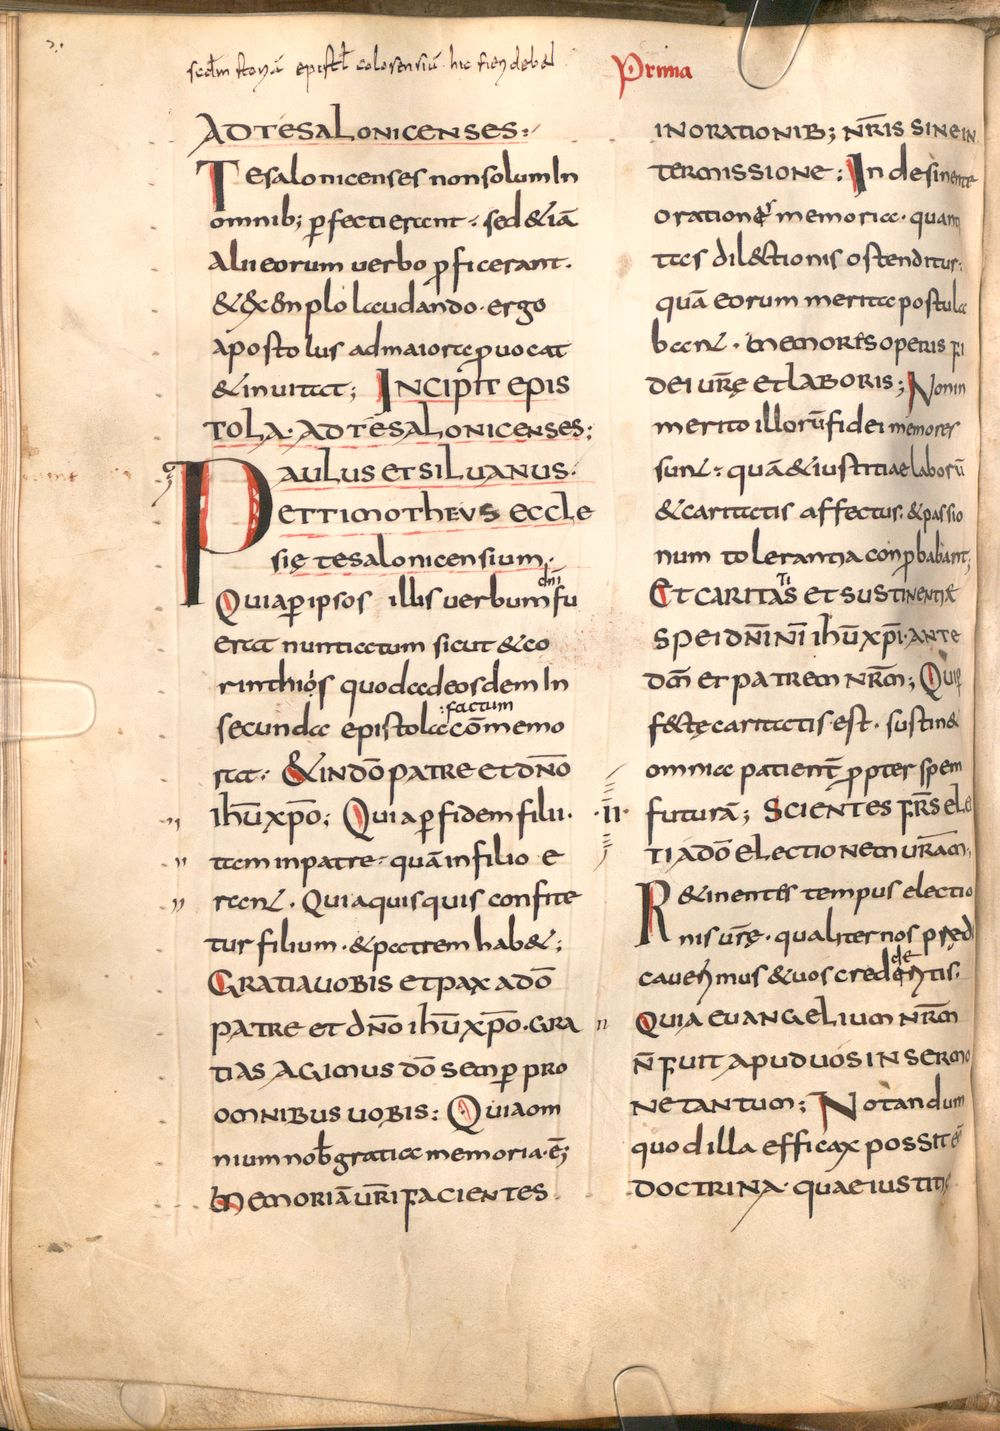 Prima
AD TESALONICENSES:
Tesalonicenses non solum In
omnib; ꝑfecti erant · sed & iā
alii eorum uerbo ꝓficerant.
& exemplo laudando · ergo
apostolus ad maiora ꝓuocat
& inuitat; INCIPIT EPIS
TOLA · AD TESALONICENSES:
PAULUS ET SILUANUS ·
ET TIMOTHEVS ECCLE
się tesalonicensium ·
dn̄i
Quia ꝑ ipsos illis uerbum fu
erat nuntiatum sicut & co
rinthiọs quod ad eosdem In
:factum
secunda epistola cōmemo
rat · & IN DŌ PATRE ET DN̄O
IHŪ XP̄O; Quia ꝑ fidem filii ·
tam in patre · quā in filio e
rant · Quia quisquis confite
tur filium · & patrem hab&;
GRATIA UOBIS ET PAX A DŌ
PATRE ET DN̄O IHŪ XP̄O · GRA
TIAS AGIMUS DŌ SEMꝑ PRO
OMNIBUS UOBIS: Quia om
nium nob̄ gratia memoria · ē;
MEMORIĀ UR̄I FACIENTES
IN ORATIONIB; NR̄IS SINE IN
TERMISSIONE: In desinente
oratione memoria · quan
tas dil&tionis ostenditur:
quā eorum merita postula
bant · MEMORES OPERIS FI
DEI UR̄Ę ET LABORIS; Non in
merito illorū fidei memores
sunt · quā & iustitiae laborū
& caritatis affectus · & passio
num tolerantia conꝓbabant;
TI
ET CARITAS ET SUSTINENTIĘ
SPEI DN̄I NR̄I IHŪ XP̄I · ANTE
DM̄ ET PATREM NR̄M; Quię
f&tę caritatis · est · sustin&
omnia patient̄ ꝓpter spem
·II· futurā; SCIENTES FR̄S ELE
TI A DŌ ELECTIONEM UR̄AM;
R&inentes tempus electio
nis ur̄ę · qualiter nos pręd
de
cauerimus & uos credentis:
QUIA EUANGELIUM NR̄M
N̄ FUIT APUD UOS IN SERMO
NE TANTUM; Notandum
quod illa efficax possit eē
DOCTRINA · quae iustitię